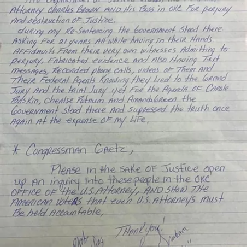 Attorney Charles Brown and his boss in OKC for perjury
and obstruction of Justice.
During my Re-Sentencing the Government Stood there
Asking for 21 years All while having in their Hands
Affidavits From their very own witnesses Admitting to
Perjury, Fabricated evidence and Also Having Text
Massages, Recorded phone calls, video of Them and
Their Federal Agents Knowing they lied to the Grand
Jury And the
Government Stood there and supressed the truth once
Again At the expense of my life.
* Congressman Gaetz,
Please in the sake of Justice open
up An inquiry into these people in the OKC
Office of the U.S. Attorney, And show The
American voters that even U.S. Attorneys must
Be held Accountable.
Thank you!